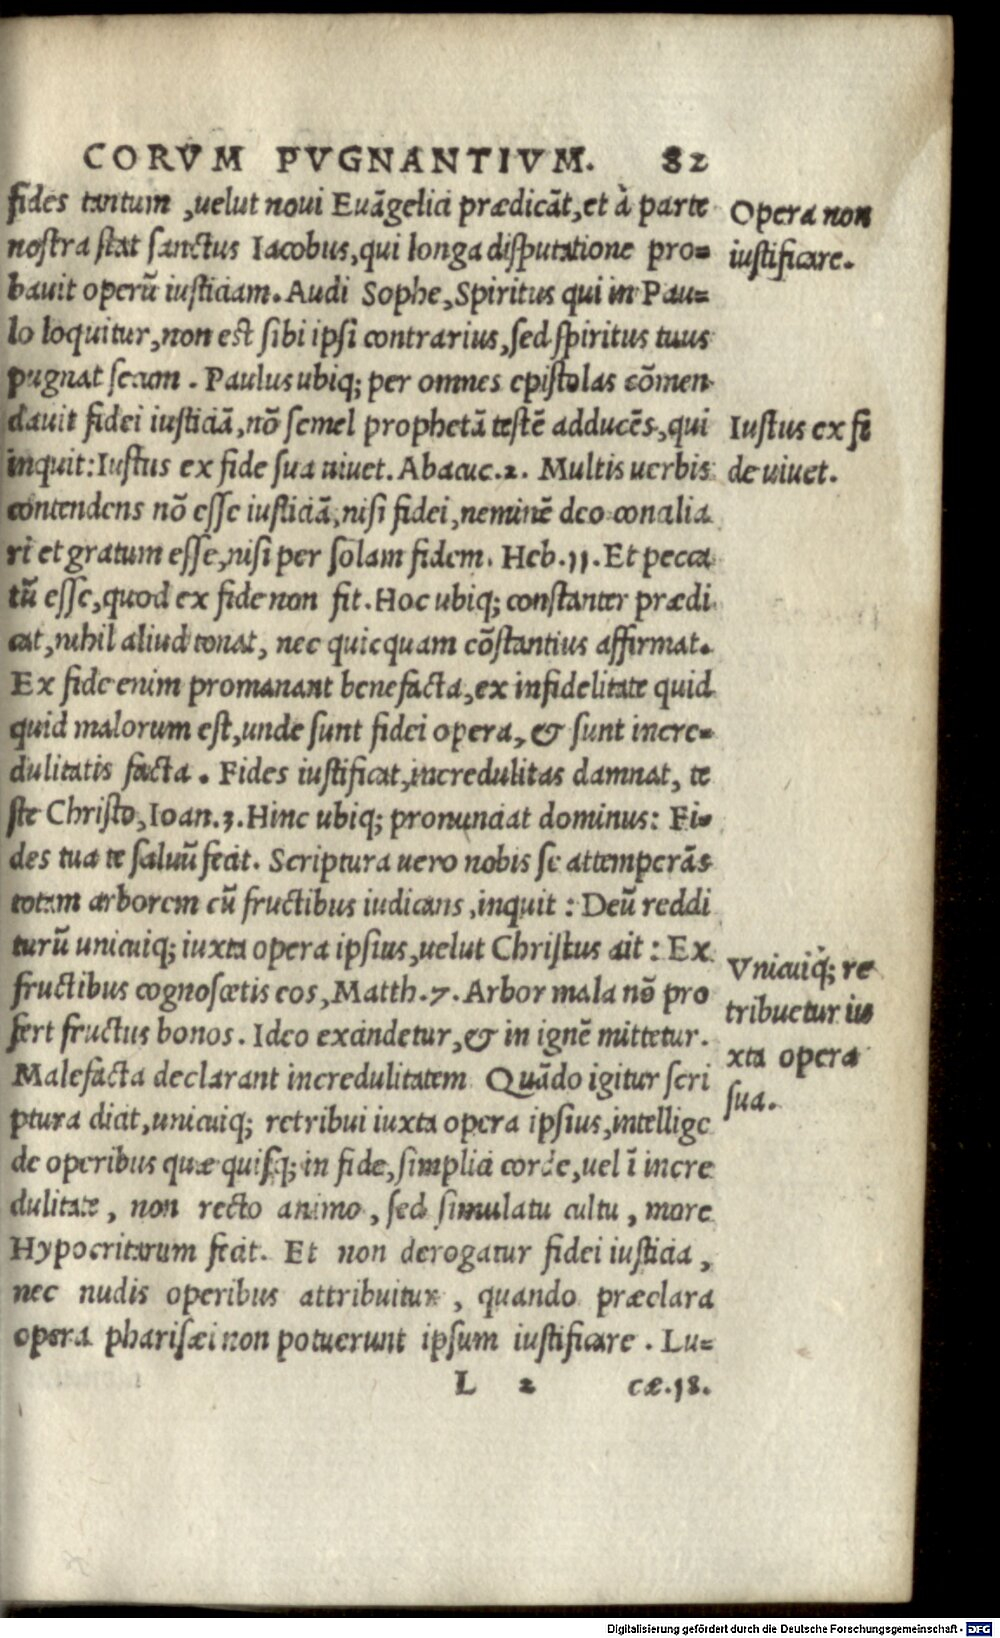 CORVM PVGNANTIVM. 82
fides tantum, uelut noui Euãgelici prædicãt, et à parte
nostra stat sanctus Iacobus, qui longa disputatione pro=
bauit operũ iusticiam. Audi Sophe, Spiritus qui in Pau=
lo loquitur, non est sibi ipsi contrarius, sed spiritus tuus
pugnat secum. Paulus ubiq; per omnes epistolas cõmen
dauit fidei iusticiã, nõ semel prophetã testẽ adducẽs, qui
inquit: Iustus ex fide sua uiuet. Abacuc.2. Multis uerbis
contendens nõ esse iusticiã, nisi fidei, neminẽ deo concilia
ri et gratum esse, nisi per solam fidem. Heb.11. Et pecca
tũ esse, quod ex fide non fit. Hoc ubiq; constanter prædi
cat, nihil aliud tonat, nec quicquam cõstantius affirmat.
Ex fide enim promanant benefacta, ex infidelitate quid
quid malorum est, unde sunt fidei opera, & sunt incre=
dulitatis facta. Fides iustificat, incredulitas damnat, te
ste Christo, Ioan.3. Hinc ubiq; pronunciat dominus: Fi=
des tua te saluũ fecit. Scriptura uero nobis se attemperãs
totam arborem cũ fructibus iudicans, inquit: Deũ reddi
turũ unicuiq; iuxta opera ipsius, uelut Christus ait: Ex
fructibus cognoscetis eos, Matth.7. Arbor mala nõ pro
fert fructus bonos. Ideo excindetur, & in ignẽ mittetur.
Malefacta declarant incredulitatem Quãdo igitur scri
ptura dicit, unicuiq; retribui iuxta opera ipsius, intellige
de operibus quæ quisq; in fide, simplici corde, uel ĩ incre
dulitate, non recto animo, sed simulatu cultu, more
Hypocritarum fecit. Et non derogatur fidei iusticia,
nec nudis operibus attribuitur, quando præclara
opera pharisæi non potuerunt ipsum iustificare. Lu=
L 2 cæ.18.
Opera non
iustificare.
Iustus ex fi
de uiuet.
Vnicuiq̀; re
tribuetur iu
xta opera
sua.
Digitalisierung gefördert durch die Deutsche Forschungsgemeinschaft - DFG